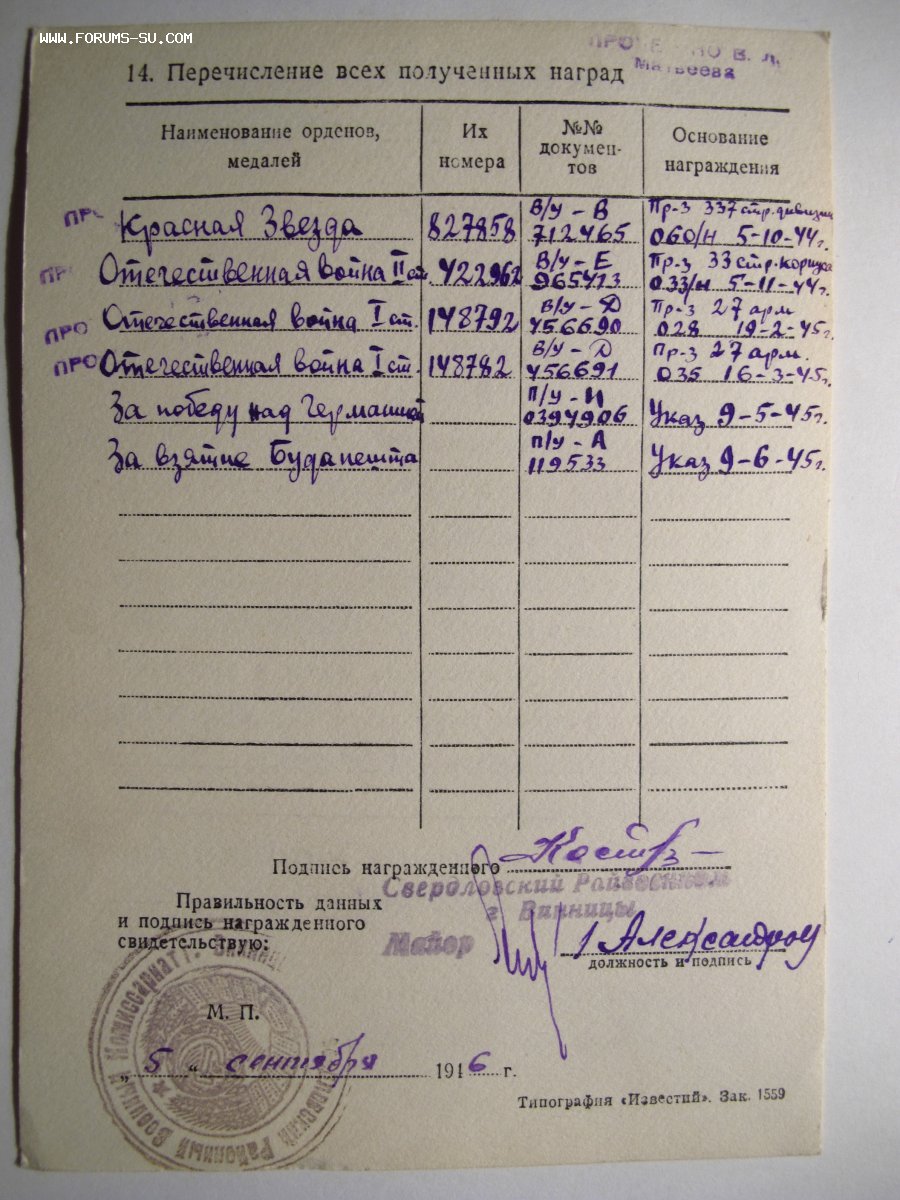 www.forums-su.com
В. Л.
Матвеева
14. Перечисление всех полученных наград
Наименование орденов, медалей Их номера №№ докумен-тов Основание награждения
ПРО Красная Звезда 827858 В/у - В 712465 Пр-з 337 стр. дивизии 060/н 5-10-44г.
ПРО Отечественная война II ст. 422962 В/у - Е 965473 Пр-з 33 стр. корпуса 033/н 5-11-44г.
ПРО Отечественная война I ст. 148792 В/у - Д 456690 Пр-з 27 арм 028 19-2-45г.
ПРО Отечественная война I ст. 148782 В/у - Д 456691 Пр-з 27 арм. 035 16-3-45г.
За победу над Германией П/у - И 0394906 Указ 9-5-45г.
За взятие Будапешта П/у - А 119533 Указ 9-6-45г.
Подпись награжденного
Свердловский Райвоенком
г. Винницы
Правильность данных
и подпись награжденного
свидетельствую:
Майор
должность и подпись
М. П.
„ 5 “ сентября 1946 г.
Районный Военный Комиссариат г.
Типография «Известий». Зак. 1559